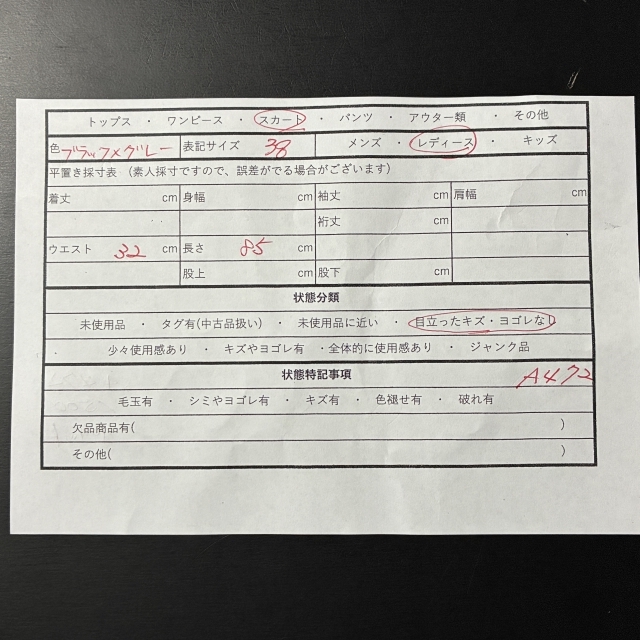 トップス ・ ワンピース ・ スカート ・ パンツ ・ アウター類 ・ その他
色 ブラック×グレー 表記サイズ 38 メンズ ・ レディース ・ キッズ
平置き採寸表 (素人採寸ですので、誤差がでる場合がございます)
着丈 cm 身幅 cm 袖丈 cm 肩幅 cm
裄丈 cm
ウエスト 32 cm 長さ 85 cm
股上 cm 股下 cm
状態分類
未使用品 ・ タグ有(中古品扱い) ・ 未使用品に近い ・ 目立ったキズ・ヨゴレなし
・ 少々使用感あり ・ キズやヨゴレ有 ・全体的に使用感あり ・ ジャンク品
状態特記事項 A472
毛玉有 ・ シミやヨゴレ有 ・ キズ有 ・ 色褪せ有 ・ 破れ有
欠品商品有( )
その他( )